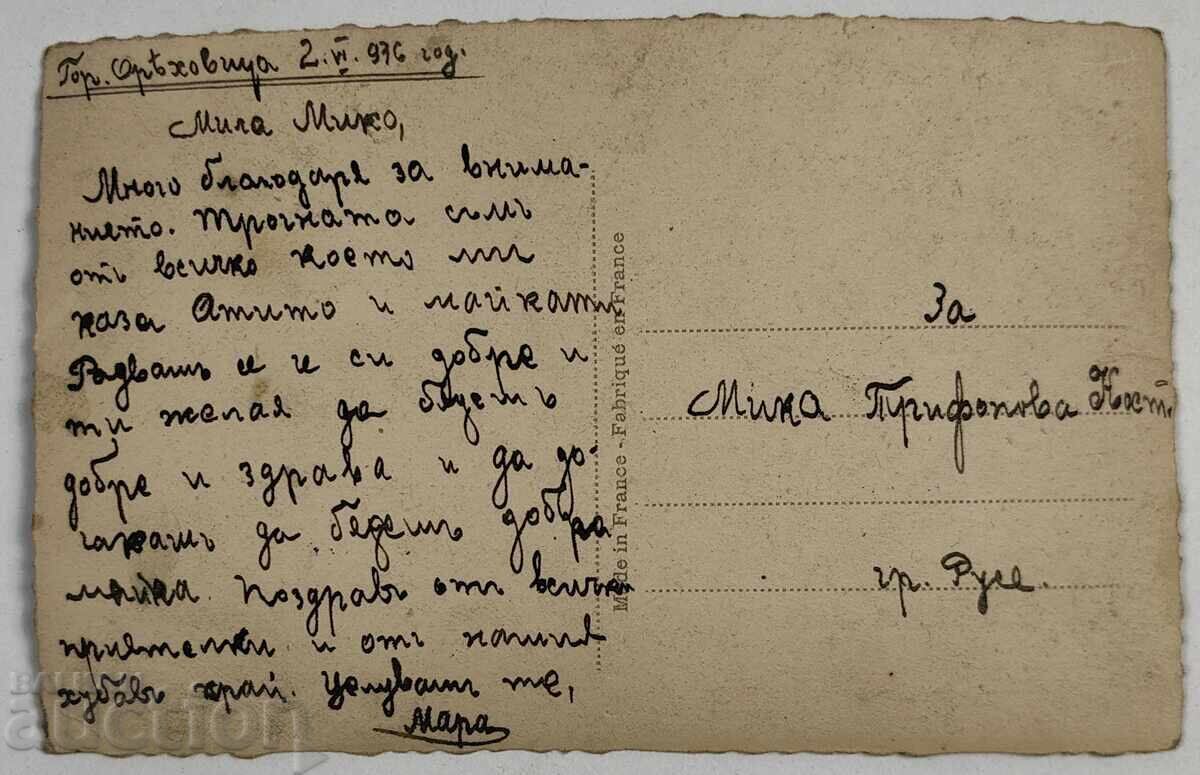 Гор. Орѣховица 2.VI.936 год.
Мила Мико,
Много благодаря за внима-
нието. Трогната съмъ
отъ всичко което ми
каза Отито и майкати
Радвамъ се че си добре и
ти желая да бѫдешъ
добре и здрава и да до-
чакашъ да бѫдешъ добра
майка. Поздравъ отъ всички
приятелки и отъ нашия
хубавъ край. Целувамъ те,
Мара
Made in France - Fabriqué en France
За
Мика Трифонова Кост.
гр. Русе.